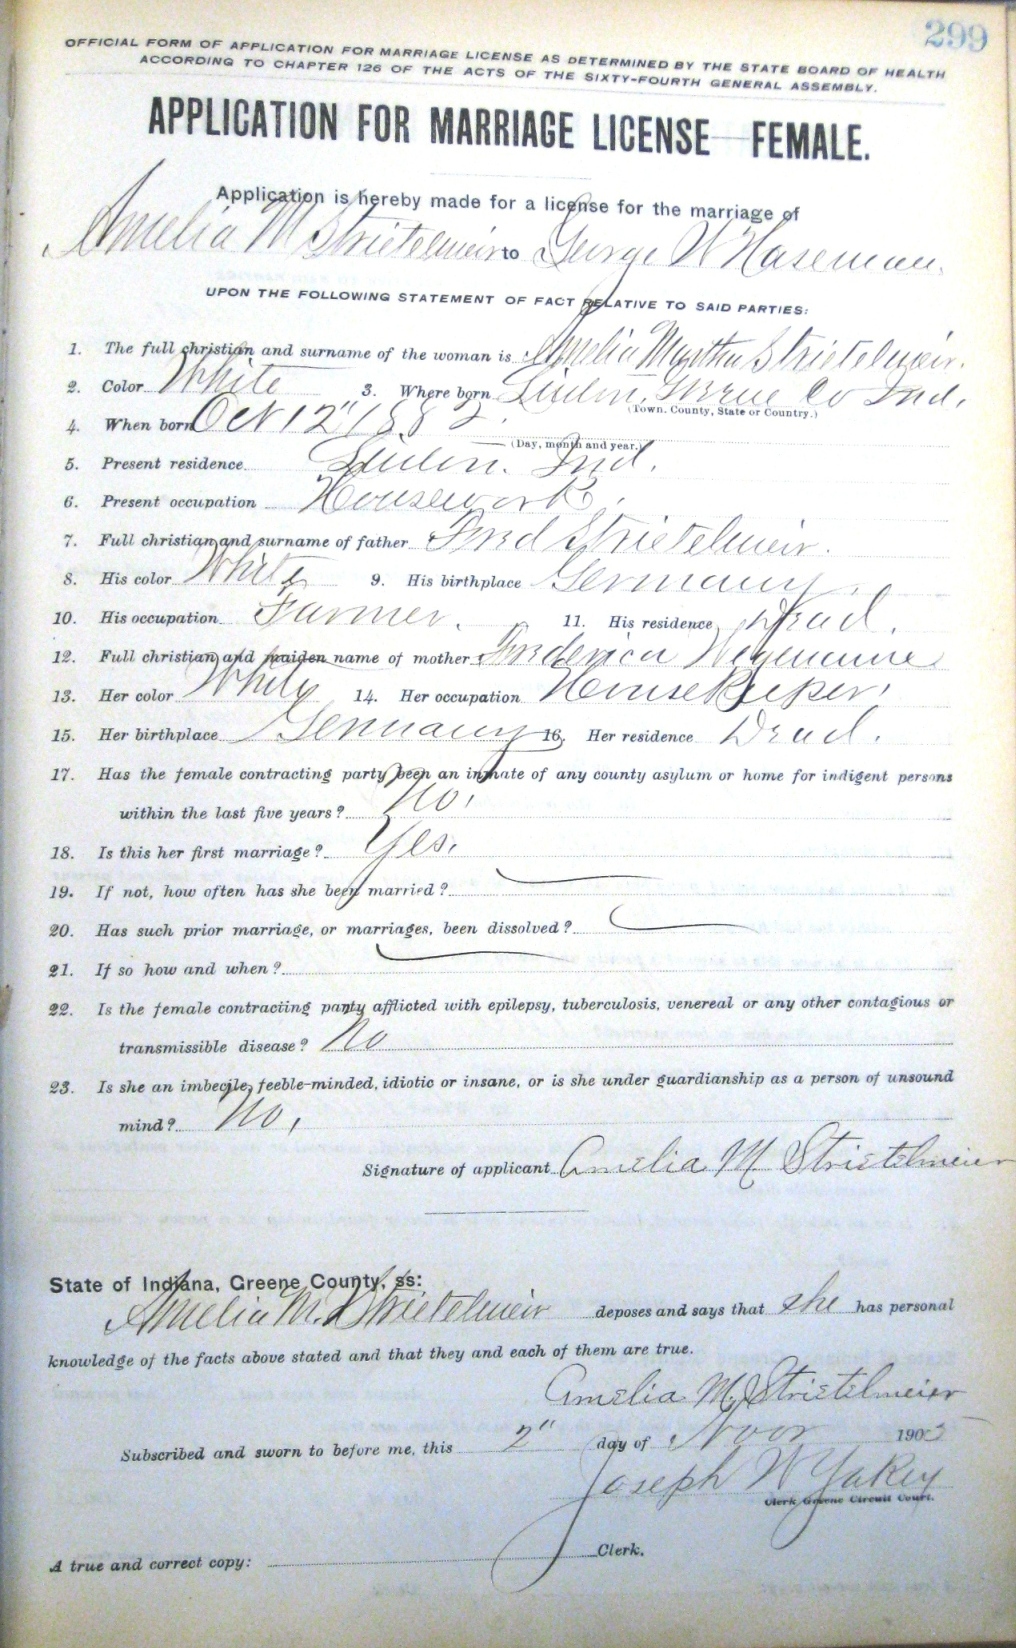 299
OFFICIAL FORM OF APPLICATION FOR MARRIAGE LICENSE AS DETERMINED BY THE STATE BOARD OF HEALTH
ACCORDING TO CHAPTER 126 OF THE ACTS OF THE SIXTY-FOURTH GENERAL ASSEMBLY.
APPLICATION FOR MARRIAGE LICENSE FEMALE.
Application is hereby made for a license for the marriage of
Amelia M Strietelmeir to George W Haseman.
UPON THE FOLLOWING STATEMENT OF FACT RELATIVE TO SAID PARTIES:
1. The full christian and surname of the woman is Amelia Martha Strietelmeir.
2. Color White 3. Where born Linton, Greene Co Ind.
(Town. County, State or Country.)
4. When born Oct 12" 1882.
(Day, month and year.)
5. Present residence Linton. Ind.
6. Present occupation Housework.
7. Full christian and surname of father Fred Strietelmeir.
8. His color White 9. His birthplace Germany.
10. His occupation Farmer. 11. His residence Dead.
12. Full christian and maiden name of mother Frederica
13. Her color White 14. Her occupation Housekeeper.
15. Her birthplace Germany 16. Her residence Dead.
17. Has the female contracting party been an inmate of any county asylum or home for indigent persons
within the last five years? No.
18. Is this her first marriage? Yes.
19. If not, how often has she been married?
20. Has such prior marriage, or marriages, been dissolved?
21. If so how and when?
22. Is the female contracting party afflicted with epilepsy, tuberculosis, venereal or any other contagious or
transmissible disease? No
23. Is she an imbecile, feeble-minded, idiotic or insane, or is she under guardianship as a person of unsound
mind? No.
Signature of applicant Amelia M Strietelmeier
State of Indiana, Greene County, ss:
Amelia M. Strietelmeir deposes and says that she has personal
knowledge of the facts above stated and that they and each of them are true.
Amelia M. Strietelmeier
Subscribed and sworn to before me, this 2" day of Nov 1905
Joseph W Yakey
Clerk Greene Circuit Court.
A true and correct copy: Clerk.